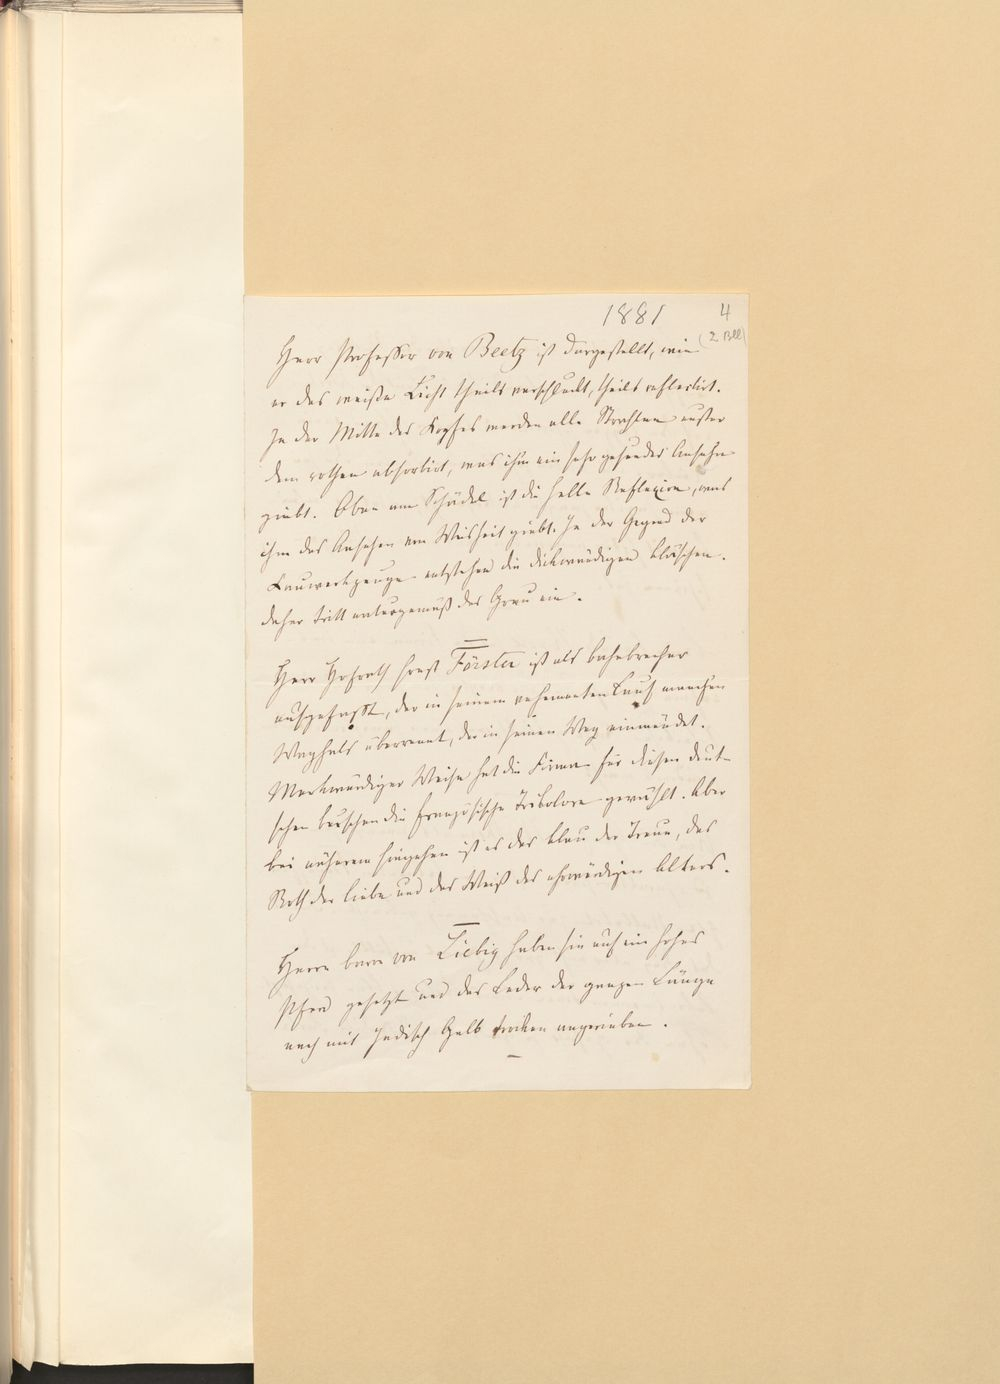 1881
4
(2 Bll)
Herr Professor von Beetz ist dargestellt, wie
er das weiße Licht theils verschluckt, theils reflectirt.
In der Mitte des Kopfes werden alle Strahlen außer
dem rothen absorbirt, was ihm ein sehr gesundes Ansehn
giebt. Oben am Schädel ist die helle Reflexion, was
ihm das Ansehen von Weisheit giebt. In der Gegend der
Kauwerkzeuge entstehen die dickwandigen Bläschen.
daher tritt naturgemäß das Grau ein.
Herr Hofrath Ernst Förster ist als bahnbrecher
aufgefaßt, der in seinem vehementen Lauf manchen
Waghals überrennt, der in seinen Weg einmündet.
Merkwürdiger Weise hat die Firma für diesen deut-
schen burschen die französische Trikolore gewählt. Aber
bei näherem hinsehen ist es das blau der Treue, das
Roth der liebe und das Weiß des ehrwürdigen Alters.
Herrn baron von Liebig haben sie auf ein hohes
Pferd gesetzt und das Leder der ganzen Länge
nach mit Indisch Gelb trocken angerieben.